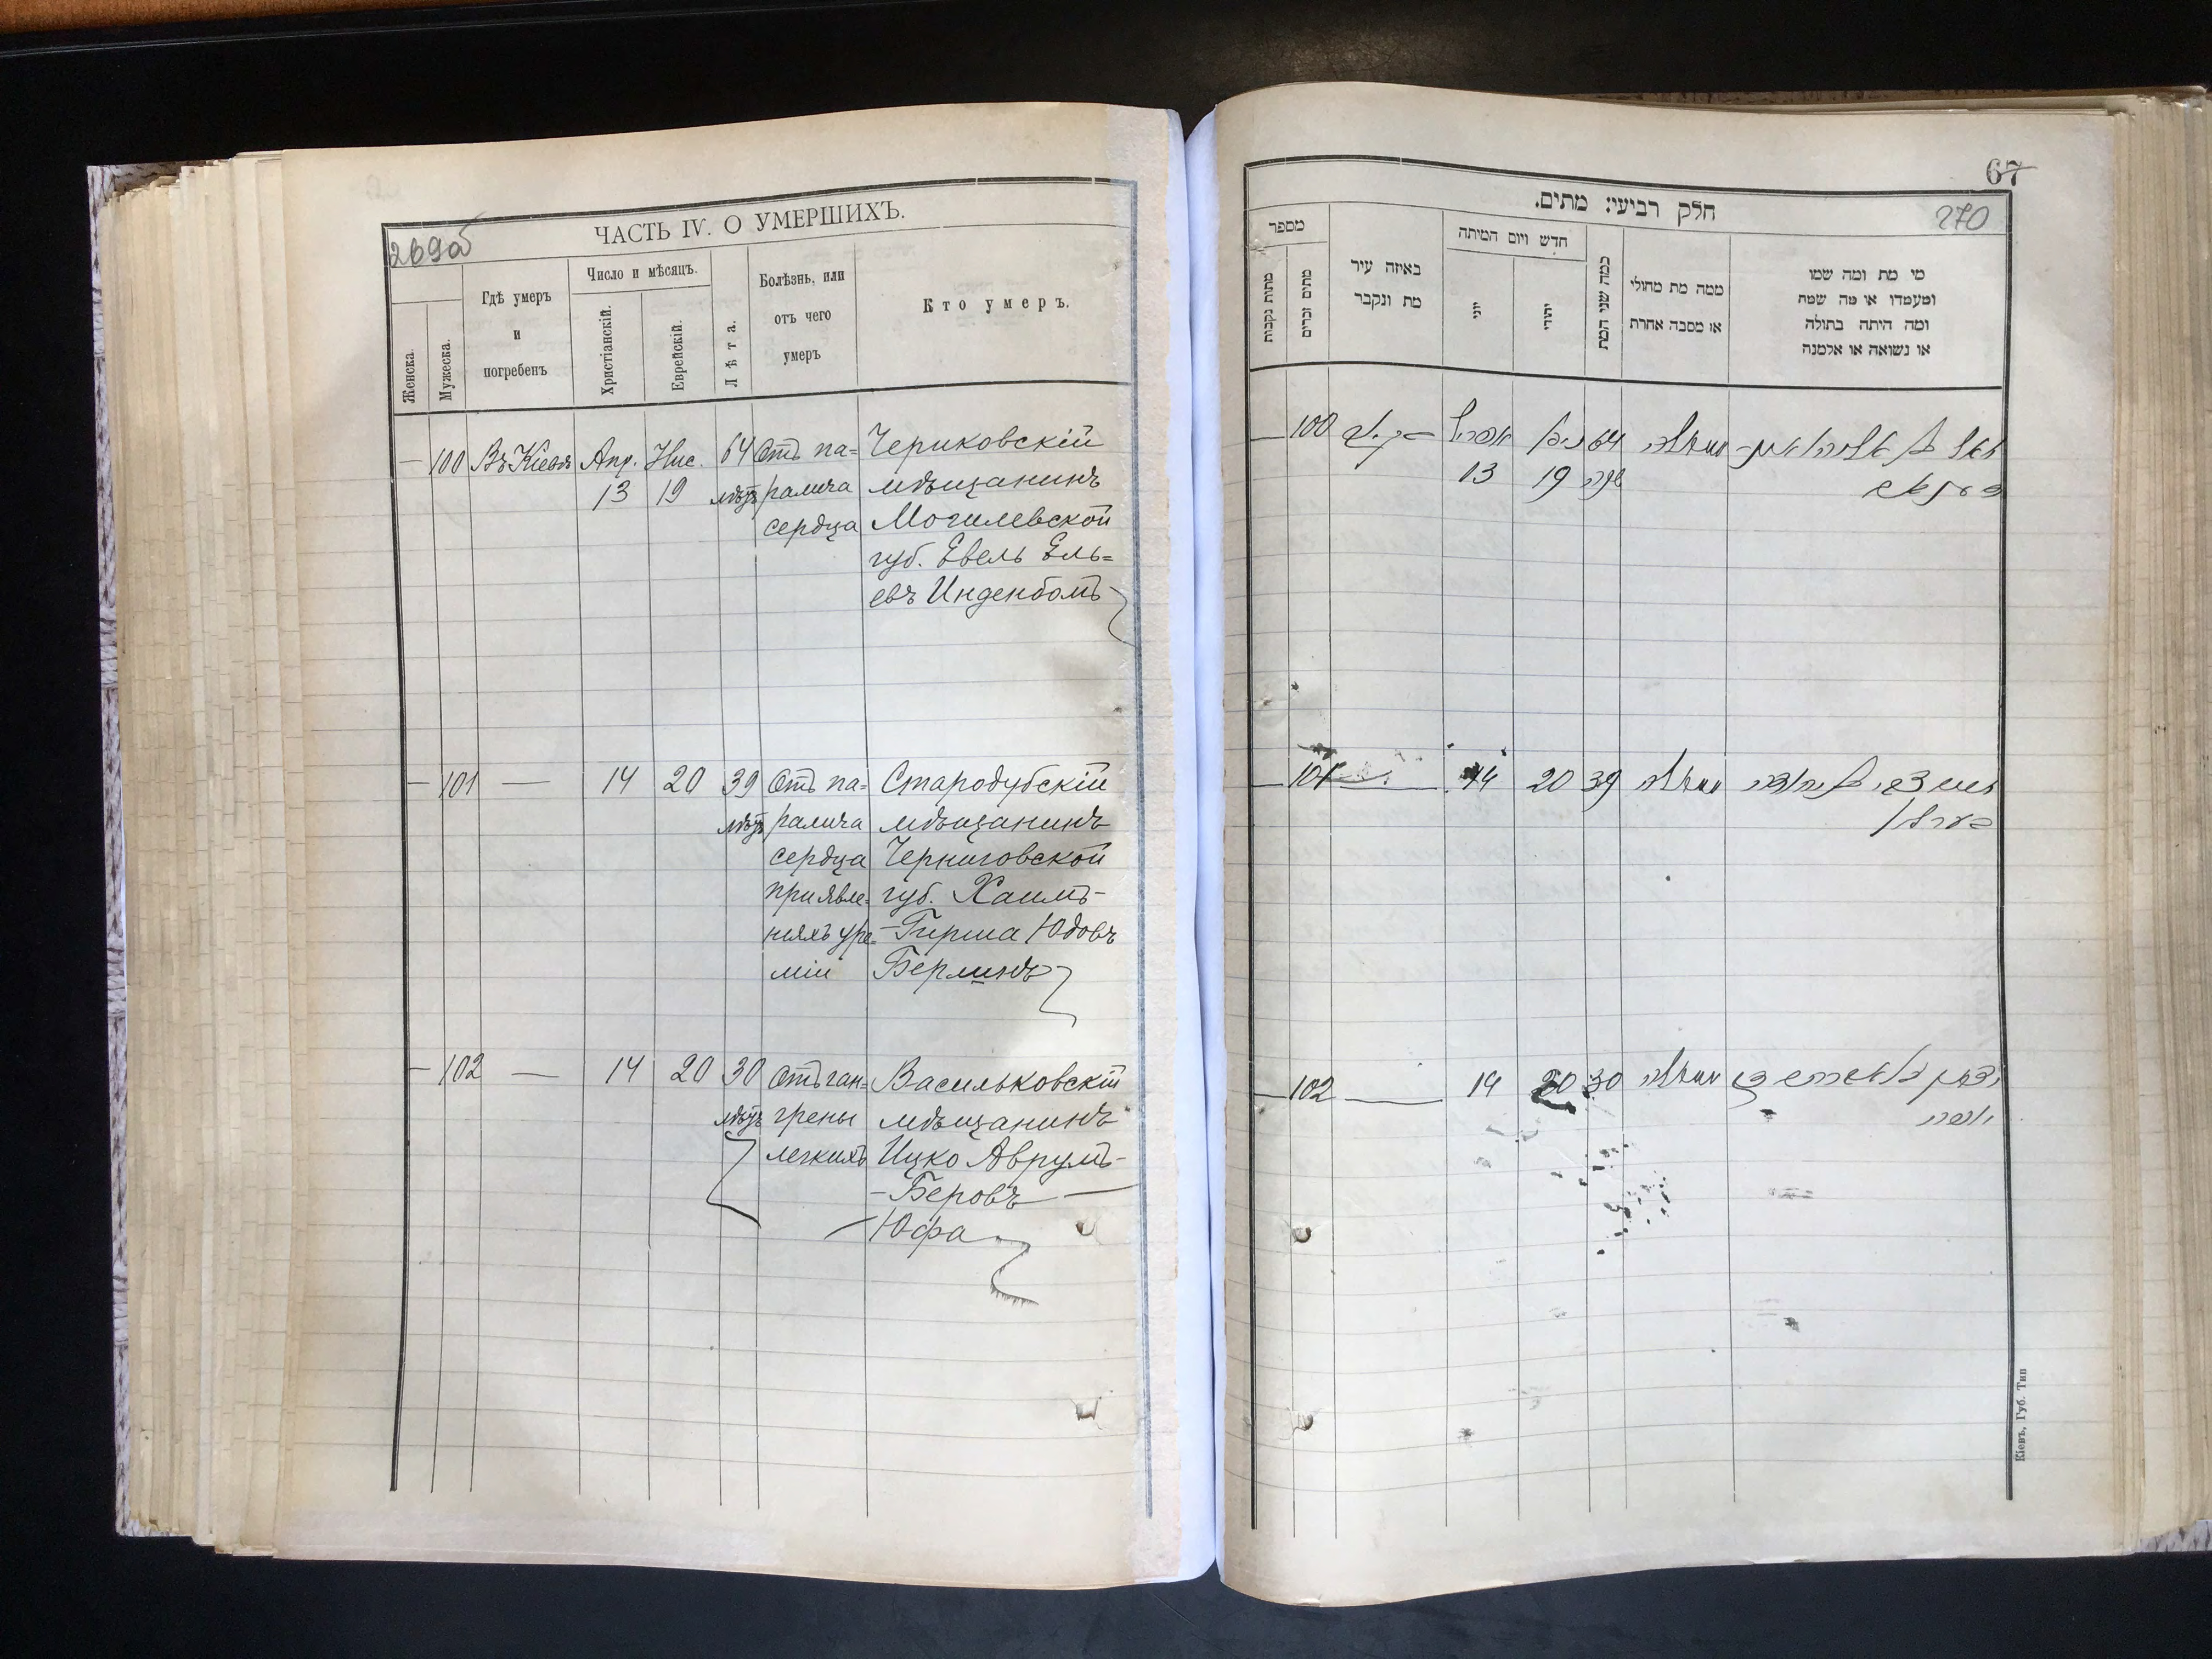 269об
ЧАСТЬ IV. О УМЕРШИХЪ.
Женска.
Мужеска.
Гдѣ умеръ
и
погребенъ
Число и мѣсяцъ.
Христіанскій.
Еврейскій.
Лѣта.
Болѣзнь, или
отъ чего
умеръ
Кто умеръ.
— 100 Въ Кіевѣ Апр. Нис. 64 Отъ па= Чериковскій
13 19 лѣтъ ралича мѣщанинъ
сердца Могилевской
губ. Евель Ель=
евъ Инденбомъ
— 101 — 14 20 39 Отъ па= Стародубскій
лѣтъ ралича мѣщанинъ
сердца Черниговской
при явле= губ. Хаимъ-
ніяхъ уре= -Гирша Юдовъ
міи Берлинъ
— 102 — 14 20 30 Отъ ган= Васильковскій
лѣтъ грены мѣщанинъ
легкихъ Ицко Аврумъ-
-Беровъ —
— Юфа
67
270
חלק רביעי: מתים.
מספר
מתות נקבות
מתים זכרים
באיזה עיר
מת ונקבר
חדש ויום המיתה
יוני
יהודי
כמה שני המת
ממה מת מחולי
או מסבה אחרת
מי מת ומה שמו
ומעמדו או מה שמה
ומה היתה בתולה
או נשואה או אלמנה
— 100 אפריל ניסן 64
13 19
— 101 — 14 20 39
— 102 — 14 20 30
יופה
Кіевъ, Губ. Тип